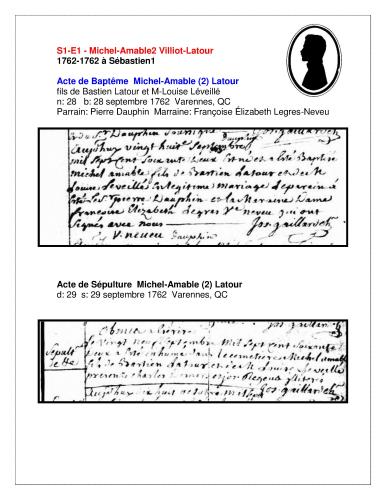 S1-E1 - Michel-Amable2 Villiot-Latour
1762-1762 à Sébastien1
Acte de Baptême Michel-Amable (2) Latour
fils de Bastien Latour et M-Louise Léveillé
n: 28 b: 28 septembre 1762 Varennes, QC
Parrain: Pierre Dauphin Marraine: Françoise Élizabeth Legres-Neveu
Dauphin Jos gaillard
aujdhuy vingt huit Septembre
mil Sept Cent Soixante Deux Est né et a été Baptisé
michel amable fils de Bastien Latour et de M
Louise Leveillé En Legitime mariage Le parein à
été Le Sr Pierre Dauphin et la Mareine Dame
francoise Elizabeth Legres Ve neveu qui ont
Signés avec nous Jos gaillard
V. neveu Dauphin
Acte de Sépulture Michel-Amable (2) Latour
d: 29 s: 29 septembre 1762 Varennes, QC
Jos gaillard
Le vingt neuf Septembre mil Sept Cent Soixante
Deux a été inhumé dans le cemetiere Michel amable
fils de Bastien Latour et de M Louise Leveille
presents charles